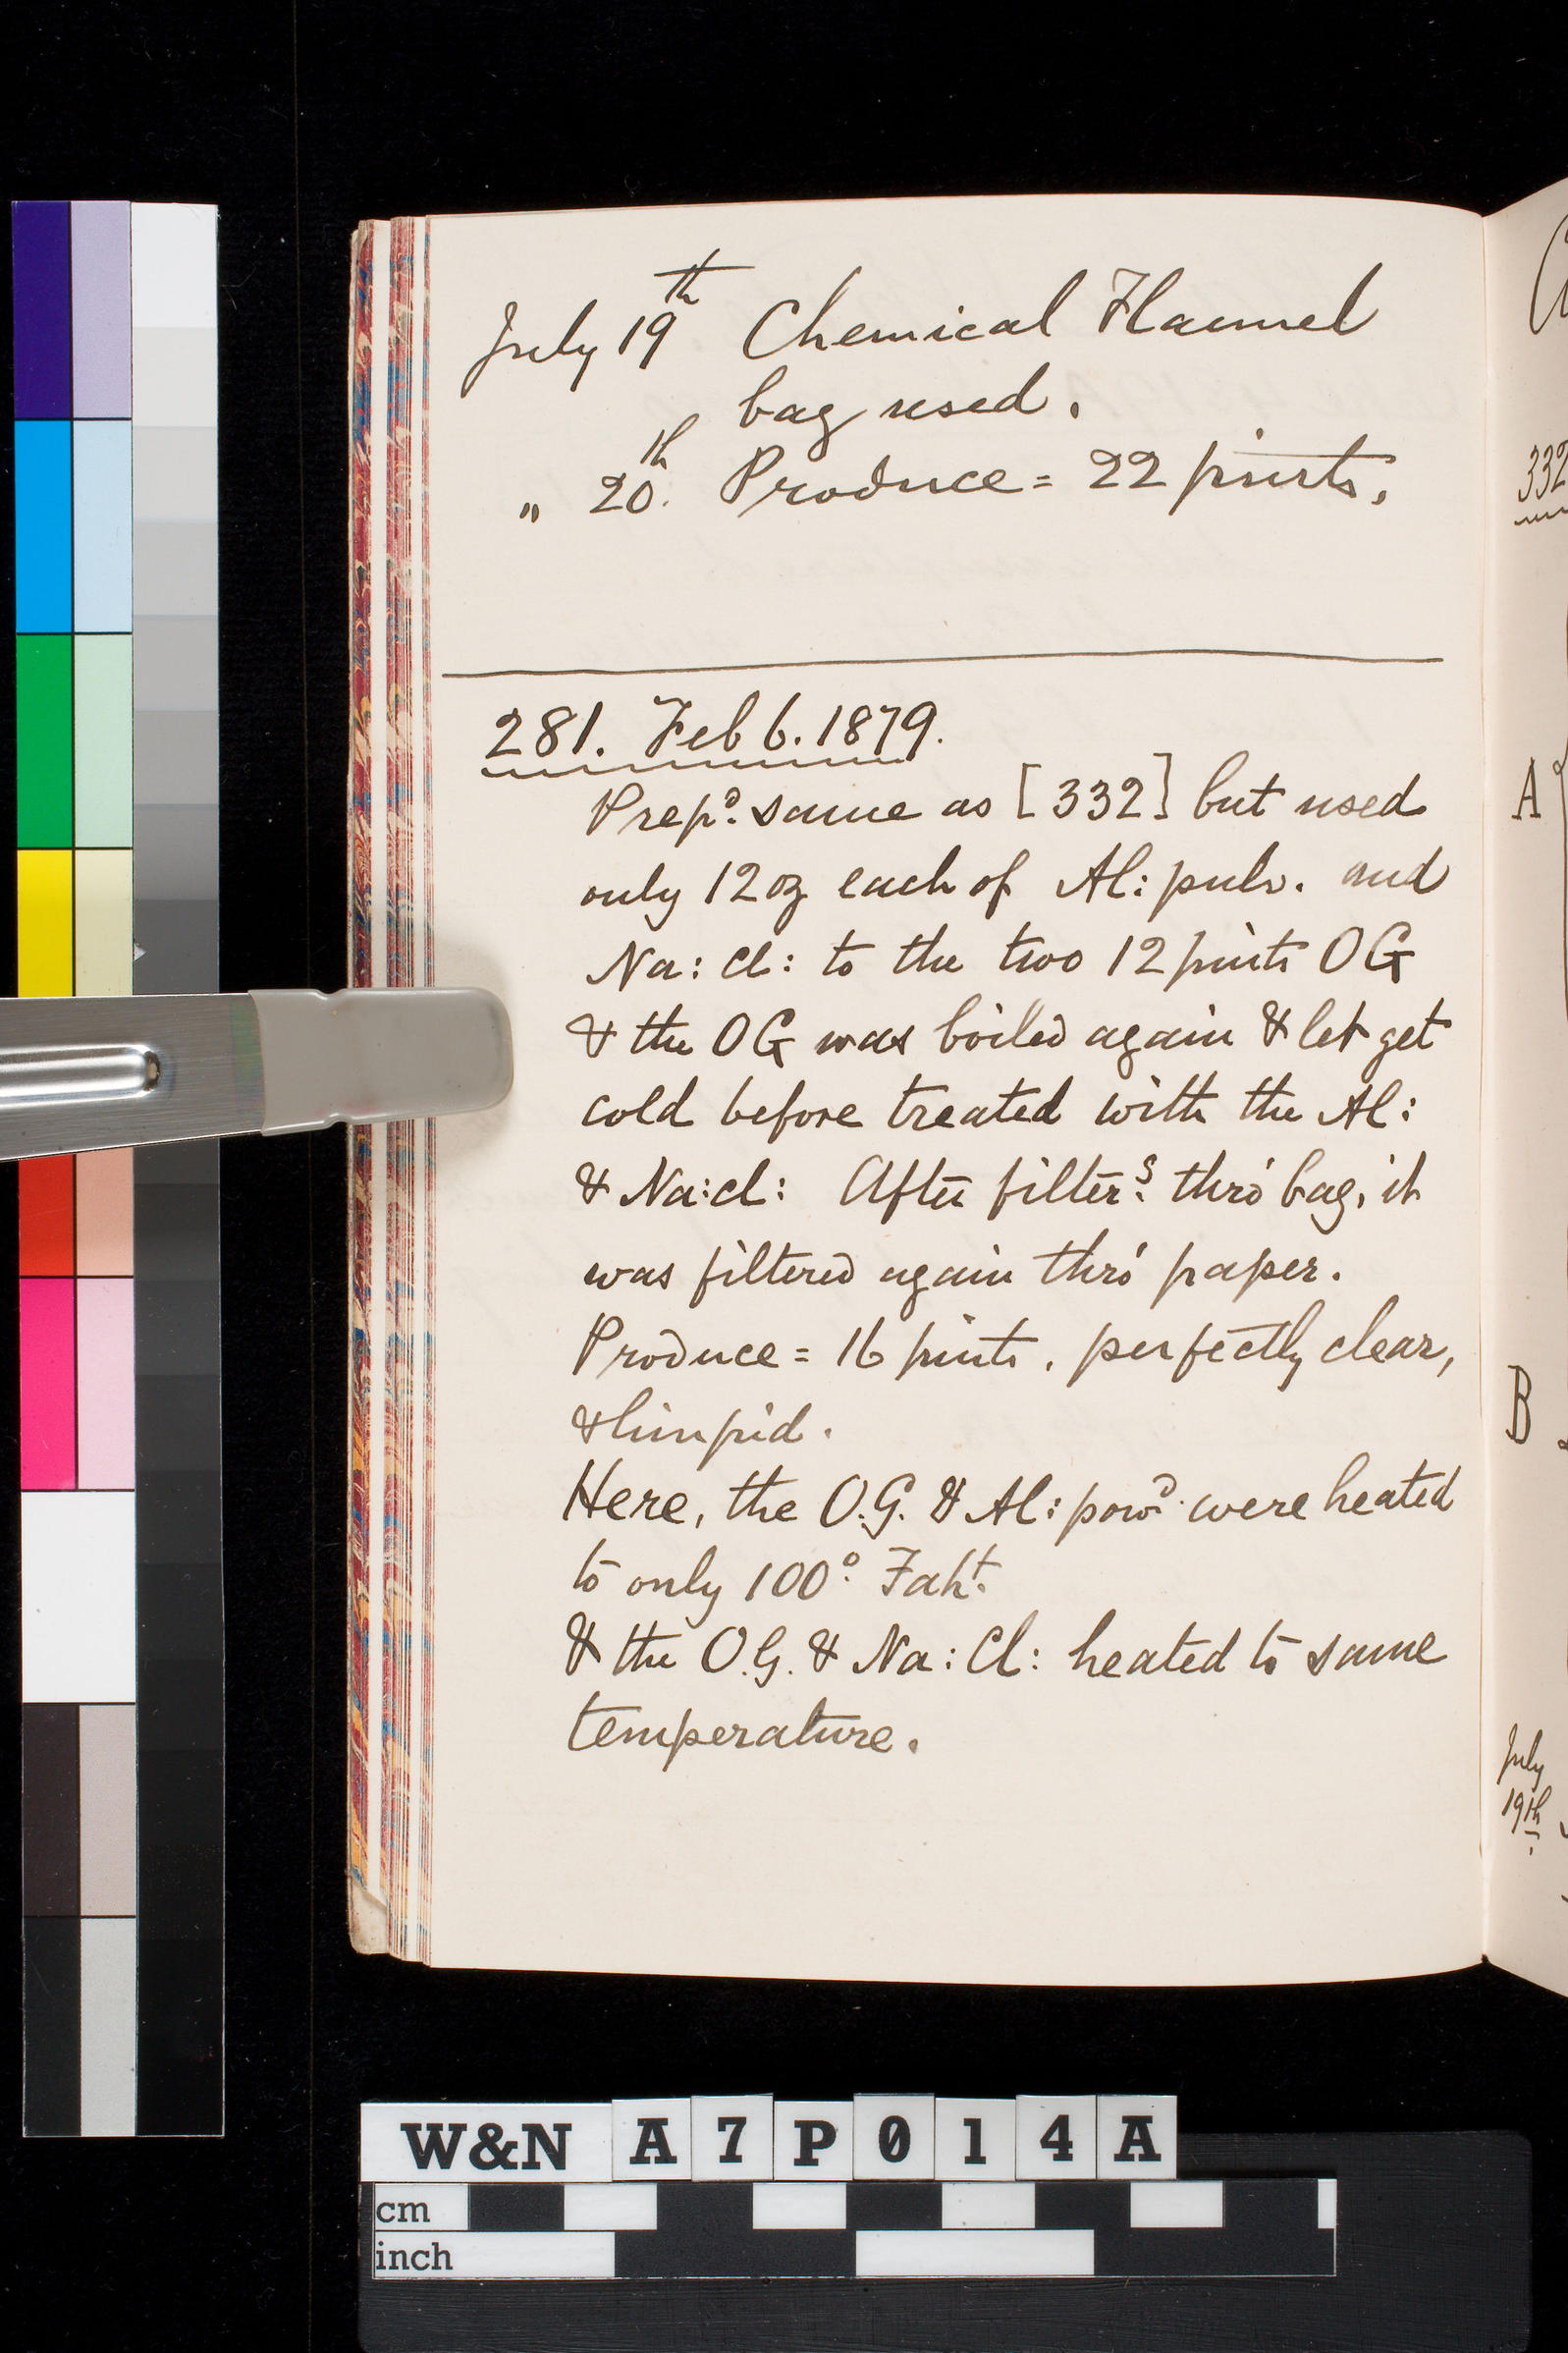 July 19th Chemical Flannel
bag used.
" 20th. Produce = 22 pints.
281. Feb 6. 1879.
Prepd. same as [332] but used
only 12 oz each of Al: pulv. and
Na: Cl: to the two 12 pints OG
& the OG was boiled again & let get
cold before treated with the Al:
& Na:Cl: After filterg. thro' bag, it
was filtered again thro' paper.
Produce = 16 pints, perfectly clear,
& limpid.
Here, the O.G. & Al: powd. were heated
to only 100°. Faht.
& the O.G. & Na: Cl: heated to same
temperature.
332
A
B
July
19th
W&N A7P014A
cm
inch